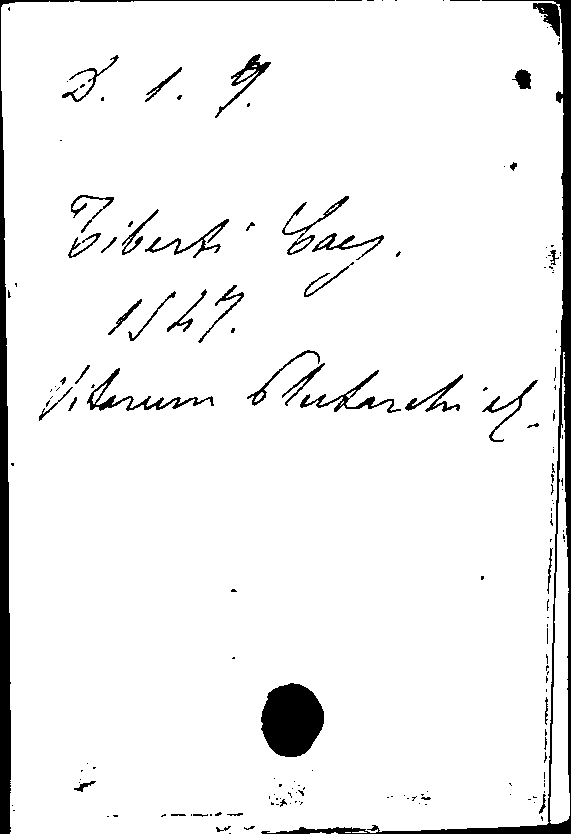 D. 1. 7.
Tiberti Caes.
1547.
Vitarum Plutarchi